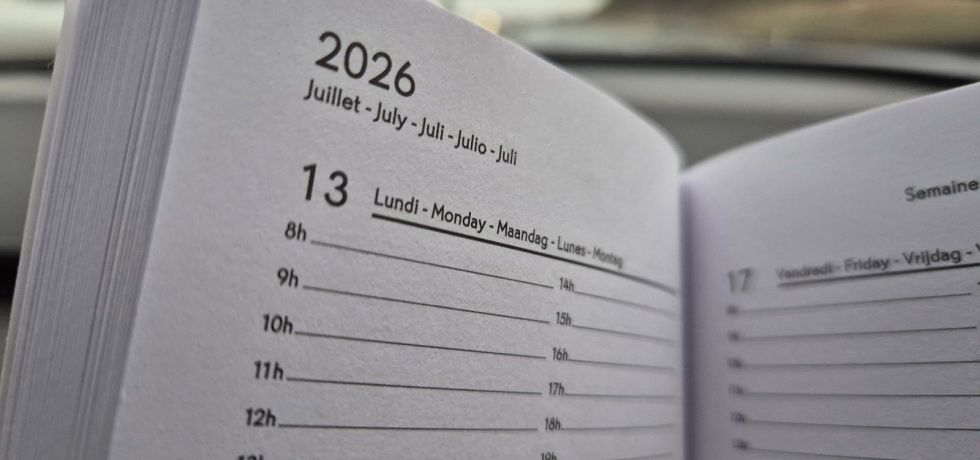 2026
Juillet - July - Juli - Julio - Juli
13 Lundi - Monday - Maandag - Lunes - Montag
8h
9h
10h
11h
12h
14h
15h
16h
17h
18h
19h
Semaine
17 Vendredi - Friday - Vrijdag -